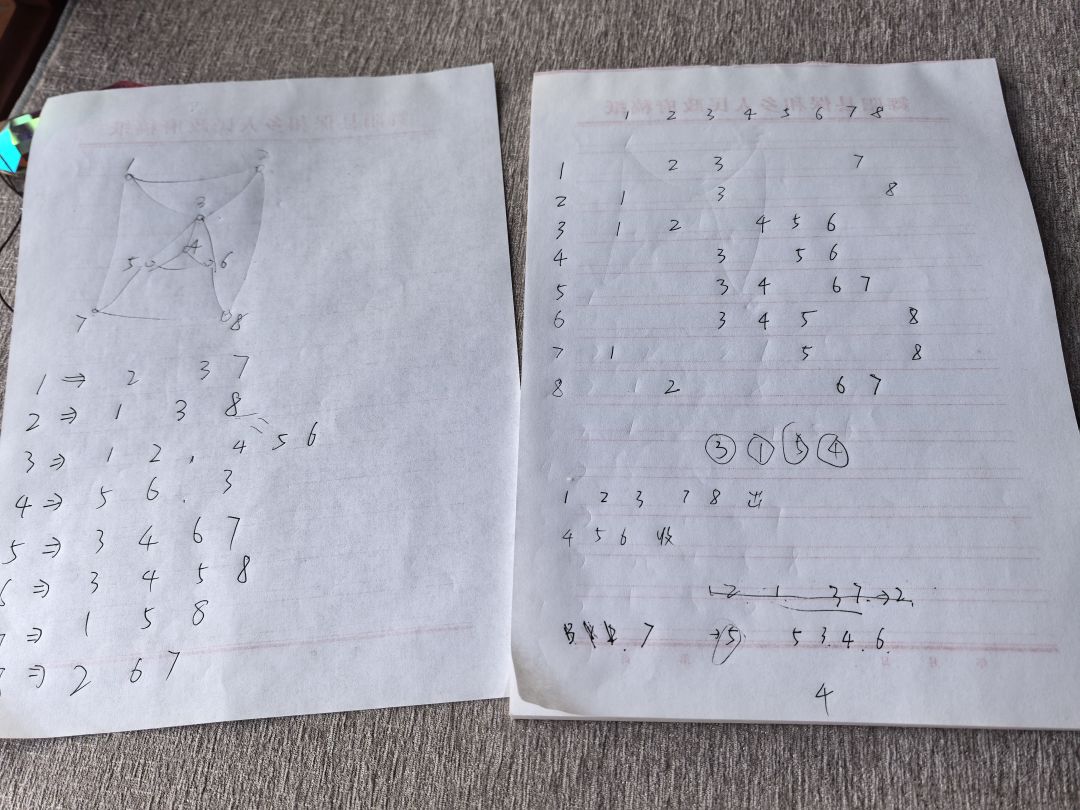 1 2
3
4
5 6
7 8
1 ⇒ 2 3 7
2 ⇒ 1 3 8
3 ⇒ 1 2 , 4 5 6
4 ⇒ 5 6 . 3
5 ⇒ 3 4 6 7
6 ⇒ 3 4 5 8
7 ⇒ 1 5 8
⇒ 2 6 7
1 2 3 4 5 6 7 8
1 2 3 7
2 1 3 8
3 1 2 4 5 6
4 3 5 6
5 3 4 6 7
6 3 4 5 8
7 1 5 8
8 2 6 7
③ ① ⑤ ④
1 2 3 7 8 出
4 5 6 收
1 2 . 1 . 3 7 . → 2 .
7 → ⑤ 5 3 . 4 . 6 .
4